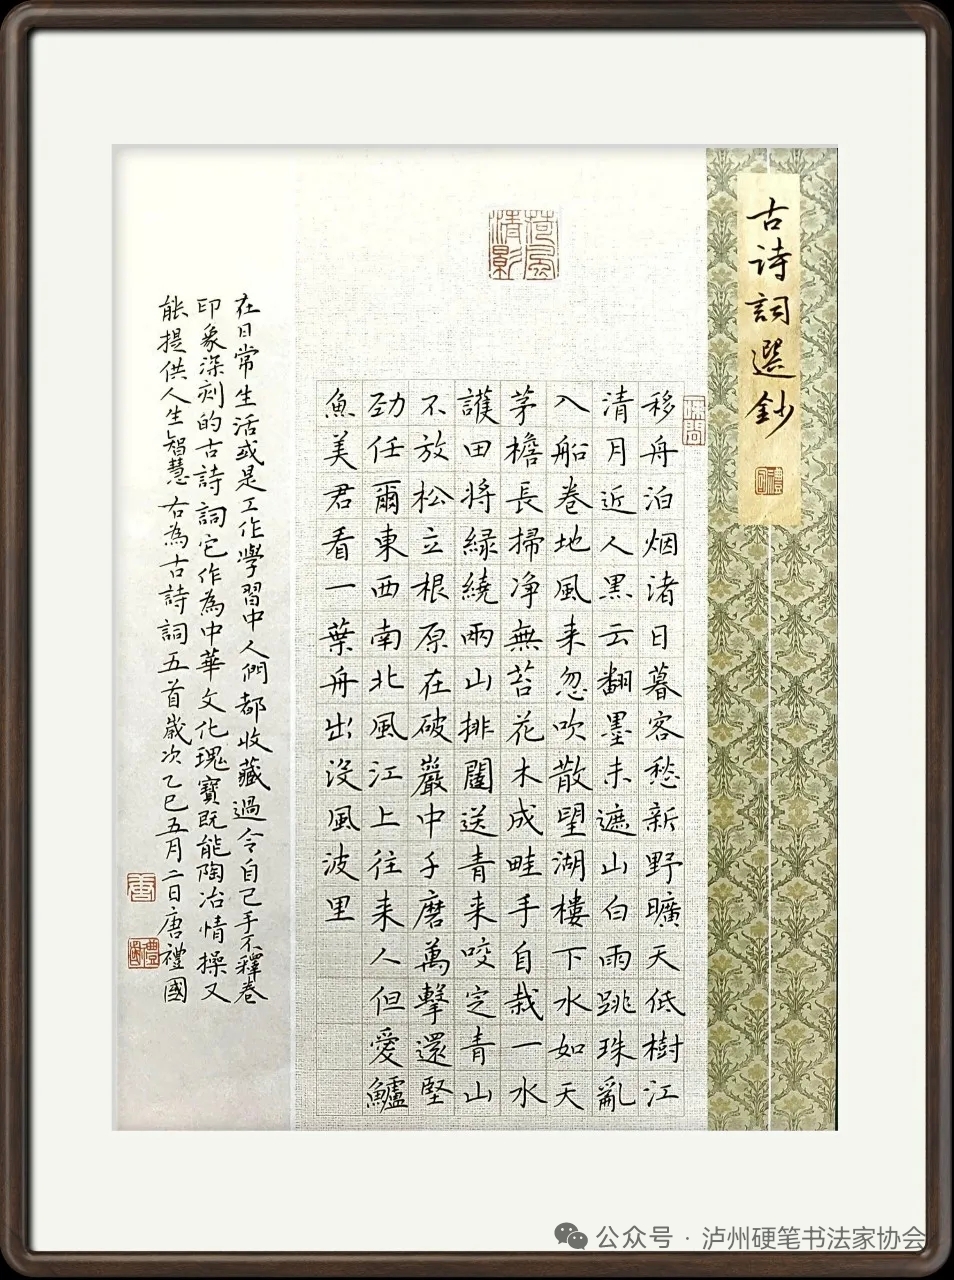 古詩詞選鈔
禮國
荷風清影
移舟泊烟渚日暮客愁新野曠天低樹江
清月近人黑云翻墨未遮山白雨跳珠亂
入船卷地風来忽吹散望湖樓下水如天
茅檐長掃净無苔花木成畦手自栽一水
護田将緑繞兩山排闥送青来咬定青山
不放松立根原在破巖中千磨萬擊還堅
劲任爾東西南北風江上往来人但愛鱸
魚美君看一葉舟出没風波里
在日常生活或是工作學習中人們都收藏過令自己手不釋卷
印象深刻的古詩詞它作為中華文化瑰寶既能陶冶情操又
能提供人生智慧右為古詩詞五首歲次乙巳五月二日唐禮國
唐
禮國
公众号 · 泸州硬笔书法家协会